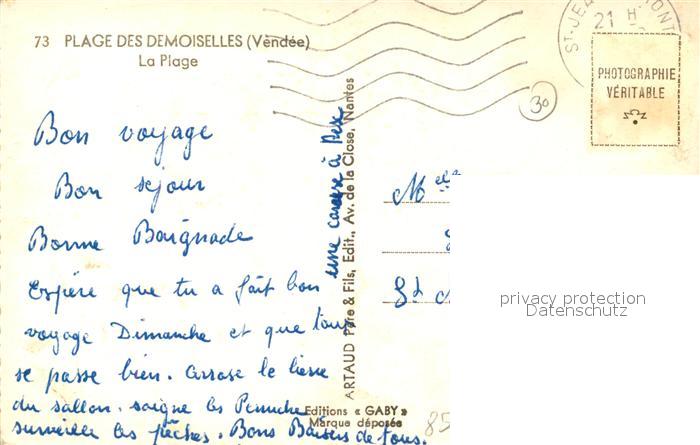 73 PLAGE DES DEMOISELLES (Vendée)
La Plage
ST-JEAN
MONT
21 H
PHOTOGRAPHIE
VÉRITABLE
30
Bon voyage
Bon séjour
Bonne Baignade
Espère que tu a fait bon
voyage Dimanche et que tous
se passe bien. arrose le lierre
du sallon. soigne les Perruche
surveille les pêches. Bons Baisers de tous.
une caresse à Rex
ARTAUD Père & Fils, Edit., Av. de la Close, Nantes
Editions « GABY »
Marque déposée
85
Melle
St
privacy protection
Datenschutz